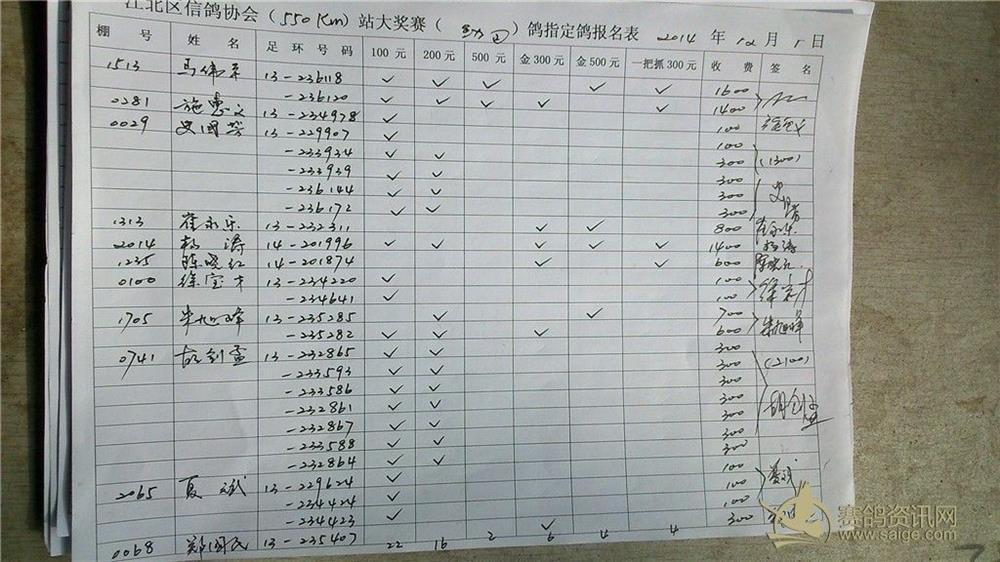 江北区信鸽协会(550Km)站大奖赛( )鸽指定鸽报名表 2014 年 12 月 1 日
棚 号 姓 名 足 环 号 码 100 元 200 元 500 元 金 300 元 金 500 元 一把抓 300 元 收 费 签 名
1513 马伟 13-236118 ✓ ✓ ✓ ✓ ✓ 1600
-236120 ✓ ✓ ✓ ✓ ✓ 1400
0281 施惠文 13-234978 ✓ 100
0029 史国芳 13-229907 ✓ 100
-233934 ✓ ✓ 300 (1300)
-233939 ✓ ✓ 300
-236144 ✓ ✓ 300
-236172 ✓ ✓ 300
1313 崔永乐 13-232311 ✓ ✓ 800 崔永乐
2014 杨涛 14-201996 ✓ ✓ ✓ ✓ ✓ 1400 杨涛
1235 陈晓红 14-201874 ✓ ✓ 600 陈晓红
0100 徐宝才 13-234220 ✓ 100 徐宝才
-234641 ✓ 100
1705 朱旭峰 13-235285 ✓ ✓ 700 朱旭峰
-235282 ✓ ✓ ✓ 600
0741 胡剑孟 13-232865 ✓ ✓ 300 (2100)
-233593 ✓ ✓ 300
-233586 ✓ ✓ 300
-232861 ✓ ✓ 300
-232867 ✓ ✓ 300
-233588 ✓ ✓ 300
-232864 ✓ ✓ 300
2065 夏斌 13-229624 ✓ 100 夏斌
-234424 ✓ 100
-234423 ✓ 100
0068 郑国民 13-235407 ✓ 300
22 16 2 6 4 4
赛鸽资讯网
www.saige.com